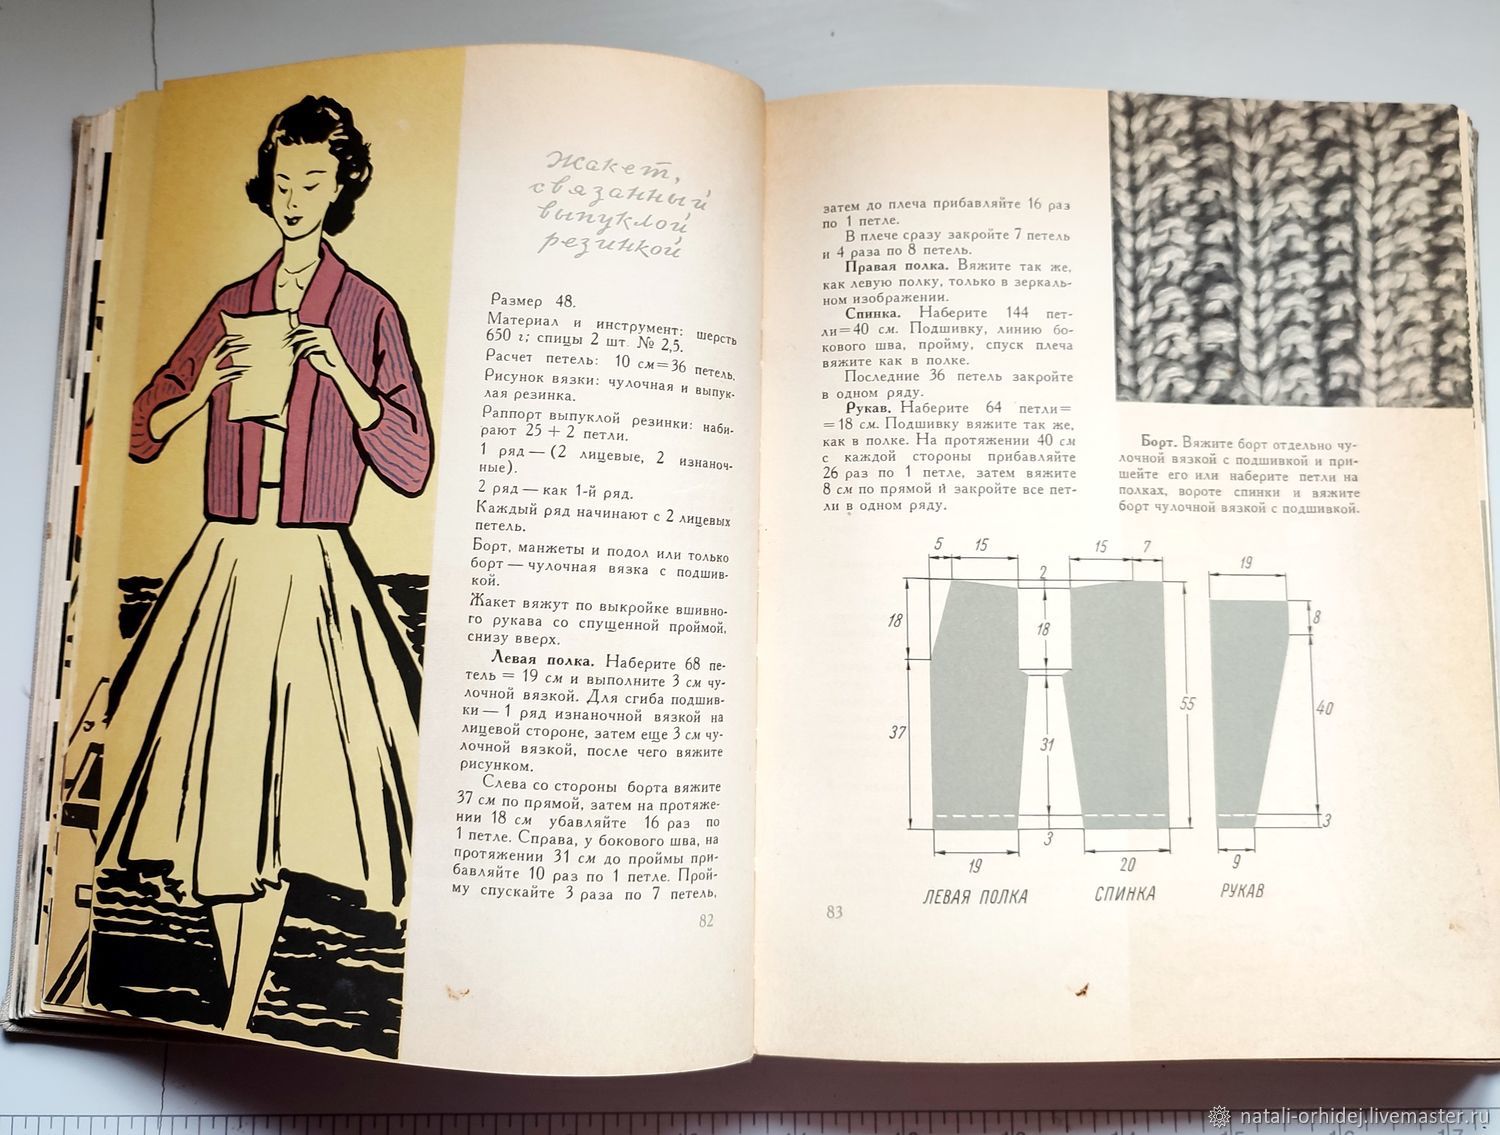 Жакет,
связанный
выпуклой
резинкой
Размер 48.
Материал и инструмент: шерсть
650 г; спицы 2 шт. № 2,5.
Расчет петель: 10 см=36 петель.
Рисунок вязки: чулочная и выпук-
лая резинка.
Раппорт выпуклой резинки: наби-
рают 25 + 2 петли.
1 ряд — (2 лицевые, 2 изнаноч-
ные).
2 ряд — как 1-й ряд.
Каждый ряд начинают с 2 лицевых
петель.
Борт, манжеты и подол или только
борт — чулочная вязка с подшив-
кой.
Жакет вяжут по выкройке вшивно-
го рукава со спущенной проймой,
снизу вверх.
Левая полка. Наберите 68 пе-
тель = 19 см и выполните 3 см чу-
лочной вязкой. Для сгиба подшив-
ки — 1 ряд изнаночной вязкой на
лицевой стороне, затем еще 3 см чу-
лочной вязкой, после чего вяжите
рисунком.
Слева со стороны борта вяжите
37 см по прямой, затем на протяже-
нии 18 см убавляйте 16 раз по
1 петле. Справа, у бокового шва, на
протяжении 31 см до проймы при-
бавляйте 10 раз по 1 петле. Прой-
му спускайте 3 раза по 7 петель,
82
затем до плеча прибавляйте 16 раз
по 1 петле.
В плече сразу закройте 7 петель
и 4 раза по 8 петель.
Правая полка. Вяжите так же,
как левую полку, только в зеркаль-
ном изображении.
Спинка. Наберите 144 пет-
ли=40 см. Подшивку, линию бо-
кового шва, пройму, спуск плеча
вяжите как в полке.
Последние 36 петель закройте
в одном ряду.
Рукав. Наберите 64 петли=
=18 см. Подшивку вяжите так же,
как в полке. На протяжении 40 см
с каждой стороны прибавляйте
26 раз по 1 петле, затем вяжите
8 см по прямой и закройте все пет-
ли в одном ряду.
Борт. Вяжите борт отдельно чу-
лочной вязкой с подшивкой и при-
шейте его или наберите петли на
полках, вороте спинки и вяжите
борт чулочной вязкой с подшивкой.
5 15 15 7 19
2
18 18 8
37 31 55 40
3 3
19 20 9
ЛЕВАЯ ПОЛКА СПИНКА РУКАВ
83
natali-orhidej.livemaster.ru